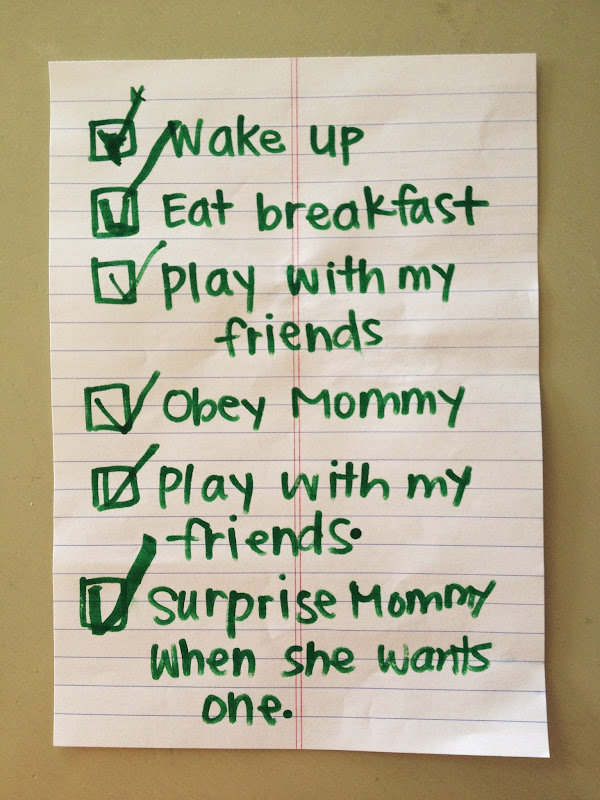 Wake up
Eat breakfast
Play with my
friends
Obey Mommy
Play with my
friends.
Surprise Mommy
When she wants
one.